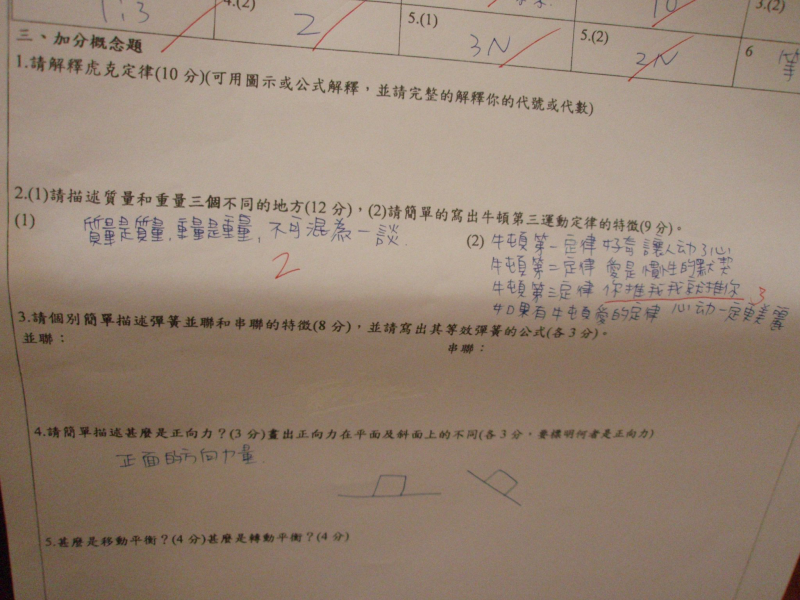 1:3
4.(2)
2
5.(1)
3N
5.(2)
2N
6
3.(2)
三、加分概念題
1.請解釋虎克定律(10 分)(可用圖示或公式解釋，並請完整的解釋你的代號或代數)
2.(1)請描述質量和重量三個不同的地方(12 分)，(2)請簡單的寫出牛頓第三運動定律的特徵(9 分)。
(1)
質量是質量，重量是重量，不可混為一談.
2
(2)
牛頓第一定律 好奇讓人动了心
牛頓第二定律 愛是慣性的默契
牛頓第三定律 你推我我就推你
3
如果有牛頓愛的定律 心动一定更美麗
3.請個別簡單描述彈簧並聯和串聯的特徵(8 分)，並請寫出其等效彈簧的公式(各 3 分)。
並聯：
串聯：
4.請簡單描述甚麼是正向力？(3 分)畫出正向力在平面及斜面上的不同(各 3 分，要標明何者是正向力)
正面的方向力量.
5.甚麼是移動平衡？(4 分)甚麼是轉動平衡？(4 分)